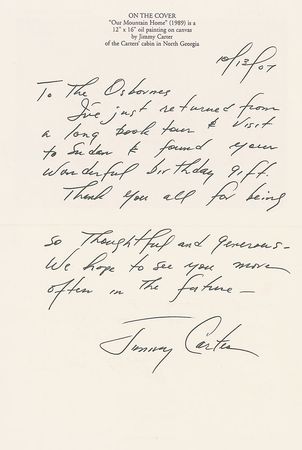 ON THE COVER
"Our Mountain Home" (1989) is a
12" x 16" oil painting on canvas
by Jimmy Carter
of the Carters' cabin in North Georgia
10/13/07
To The Osbornes
I've just returned from
a long book tour & visit
to Sudan & found your
wonderful birthday gift.
Thank you all for being
so thoughtful and generous-
We hope to see you more
often in the future -
Jimmy Carter